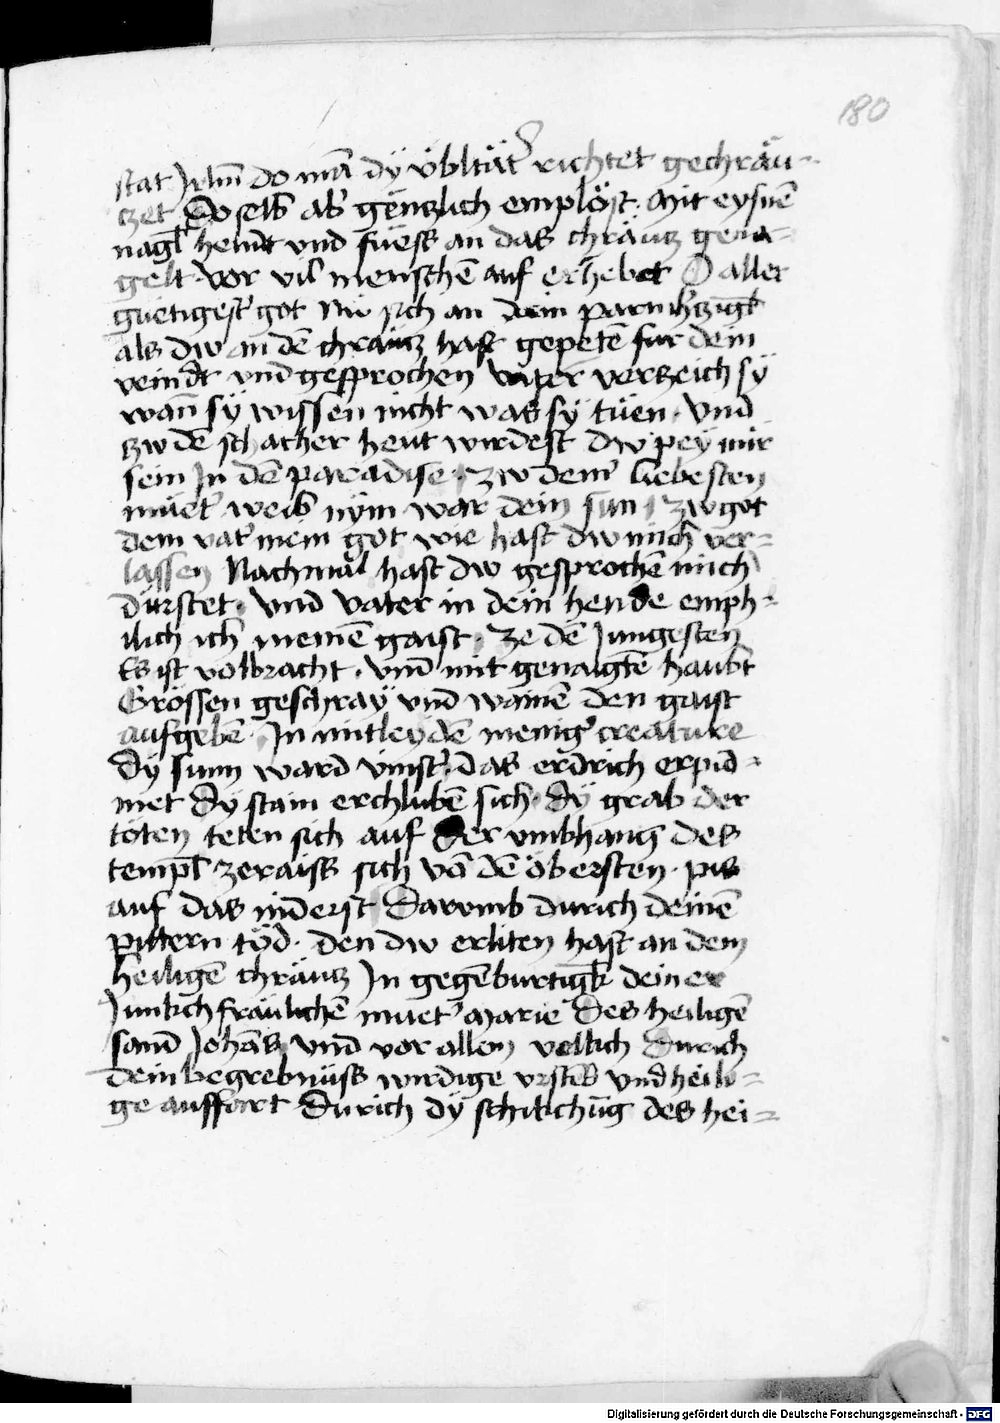 180
stat Jrlm̄ do man̄ dÿ übltät̾ richtet gechräu-
czet Do selb ab̾ gënczlich emplöst · Mit eysnē
nagl̄ hendt vnd füess an das chräucz gena-
gelt · vor vil menschē auf erhebet O aller
güetigest̾ got Nu sich an dein parmh̾czigk̄
als dw an dē chräucz hast gepetē fur dein
veindt vnd gesprochen Vater verzeich sÿ
wan̄ sÿ wissen nicht was sÿ tüen · Vnd
zw dē schacher heut wirdest dw peÿ mir
sein Jn dē paradise · zw dein̾ liebesten
müet̾ weib nÿm war dein sun · zw got
dem vat̾ mein got wie hast dw mich ver-
lassen Nachmal hast dw gesprochē mich
dürstet · Vnd Vater in dein hende emph-
ilich ich meinē gaist · ze dē Jungesten
Es ist volbracht · Vnd mit genaigtē haubt
Grössen geschraÿ vnd wainē den gaist
aufgebē · Jn mitleÿdē menig̾ creature
dÿ sunn ward vinst̾ das erdrich erpid-
met dÿ stain erchlubē sich · dÿ grab der
töten teten sich auf der vmbhang des
templ̄ zeraiss sich vō dē öbersten · pis
auf das niderst Darvmb durich deinē
pittern töd · den dw erliten hast an dem
heiligē chräucz Jn gegēburtigk̄ deiner
Junkchfräulichē muet̾ Marie Des heiligē
sand Johās Vnd vor allen vollich Durich
dein begrebnüss wirdige vrstēd Vnd heili-
ge auffart Durich dÿ schikchūg des hei-
Digitalisierung gefördert durch die Deutsche Forschungsgemeinschaft - DFG